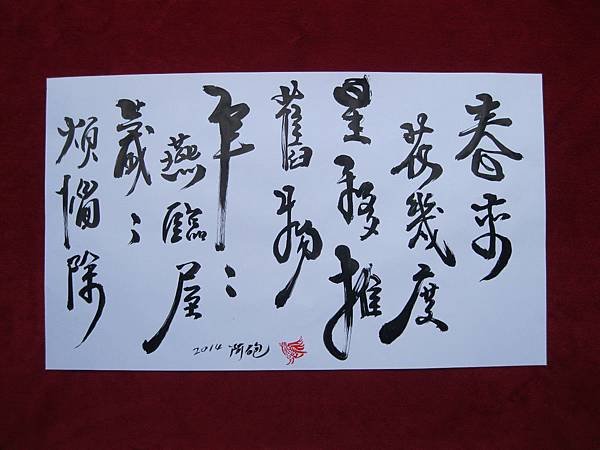 春來
花幾度
星移推
舊物
年：
燕臨屋
歲：
煩惱除
2014